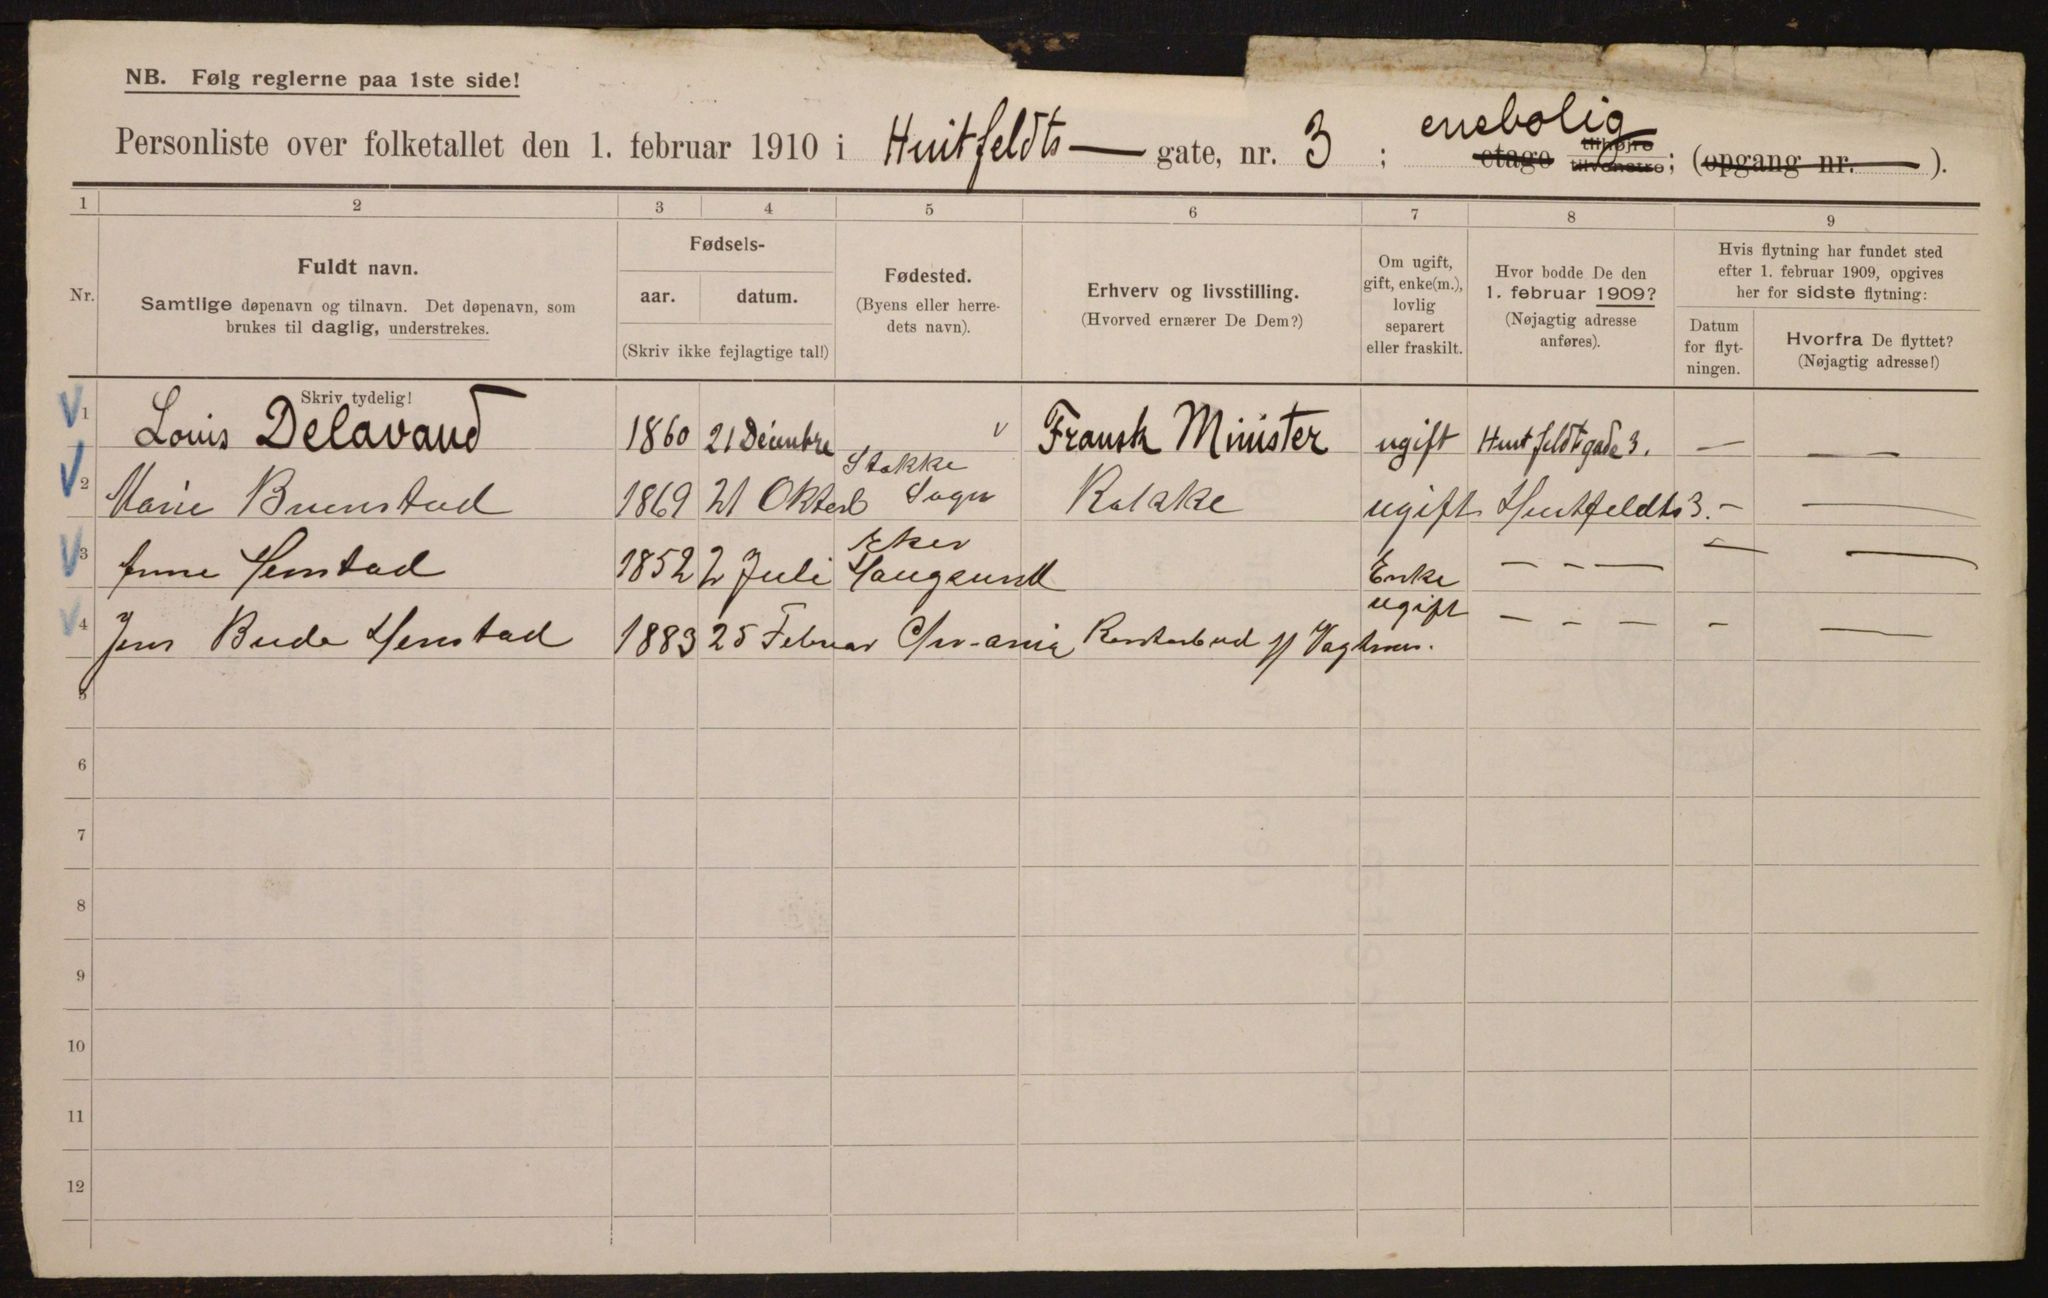 NB. Følg reglerne paa 1ste side!
Personliste over folketallet den 1. februar 1910 i Huitfeldts — gate, nr. 3 ; enebolig etage tilhøjre tilvenstre; (opgang nr. — ).
1 2 3 4 5 6 7 8 9
Nr.
Fuldt navn.
Samtlige døpenavn og tilnavn. Det døpenavn, som
brukes til daglig, understrekes.
Fødsels-
aar. datum.
(Skriv ikke fejlagtige tal!)
Fødested.
(Byens eller herre-
dets navn).
Erhverv og livsstilling.
(Hvorved ernærer De Dem?)
Om ugift,
gift, enke(m.),
lovlig
separert
eller fraskilt.
Hvor bodde De den
1. februar 1909?
(Nøjagtig adresse
anføres).
Hvis flytning har fundet sted
efter 1. februar 1909, opgives
her for sidste flytning:
Datum
for flyt-
ningen.
Hvorfra De flyttet?
(Nøjagtig adresse!)
Skriv tydelig!
1 Louis Delavaud 1860 21 Décembre Fransk Minister ugift Huitfeldtsgade 3. — — —
2 Marie Buenstad 1869 21 Oktob Stokke Sogn Kokke ugift Huitfeldts 3. — —
3 Anne Henstad 1852 2 Juli Eker Haugsund Enke — — — — —
4 Jens Bude Henstad 1883 25 Februar Chr-ania ugift — — — — —
5
6
7
8
9
10
11
12